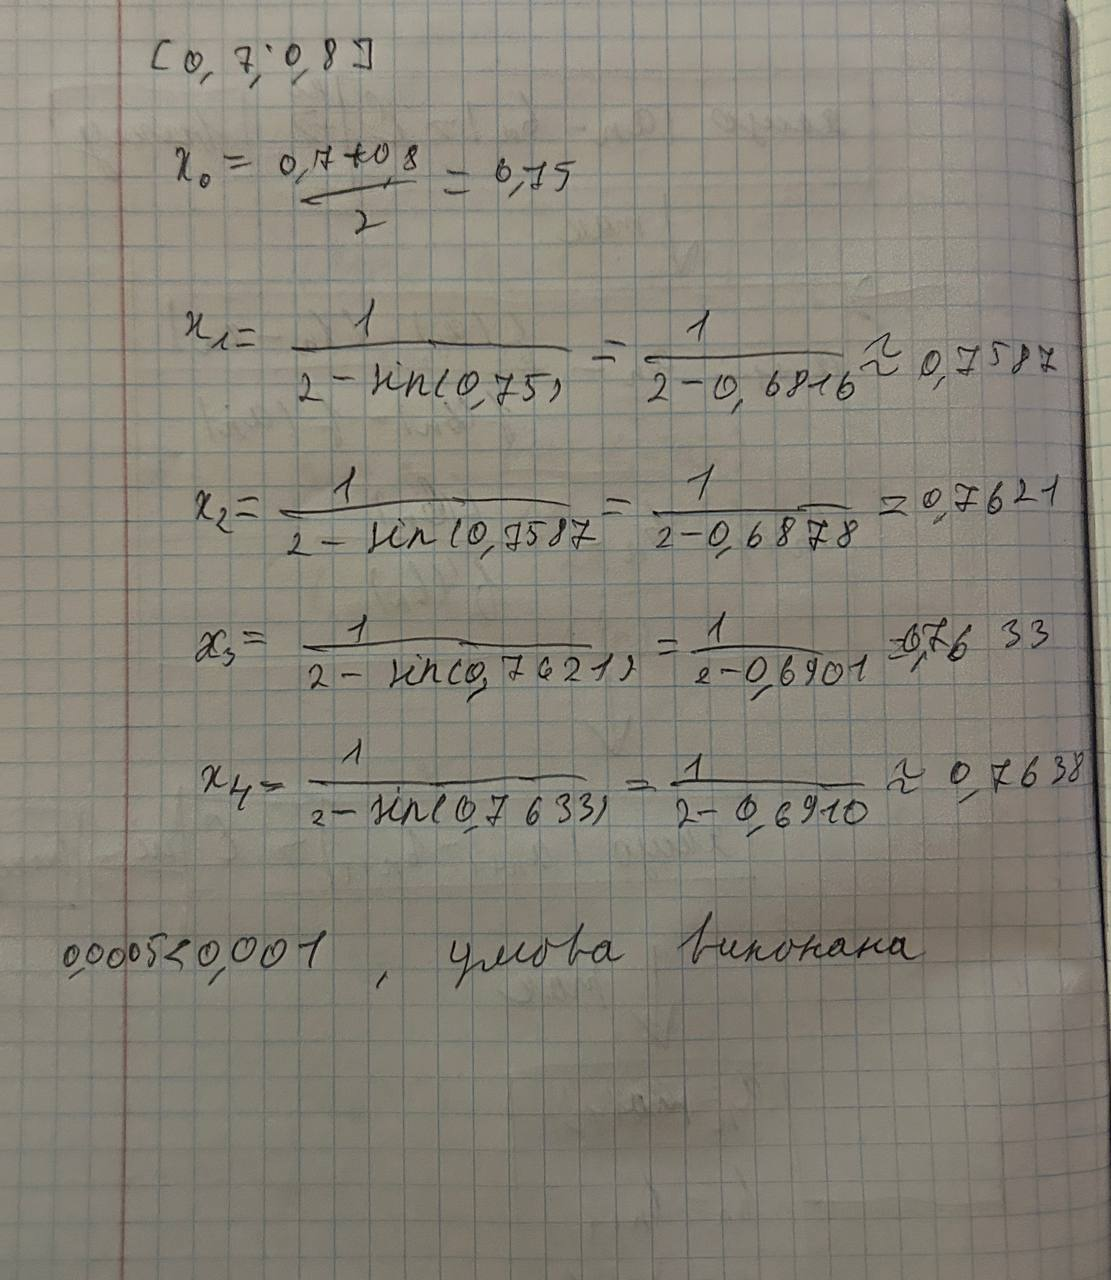 [0,7; 0,8]
x₀ = (0,7+0,8)/2 = 0,75
x₁ = 1/(2 - sin(0,75)) = 1/(2-0,6816) ≈ 0,7587
x₂ = 1/(2 - sin(0,7587) = 1/(2-0,6878) = 0,7621
x₃ = 1/(2 - sin(0,7621)) = 1/(2-0,6901) = 0,7633
x₄ = 1/(2 - sin(0,7633)) = 1/(2-0,6910) ≈ 0,7638
0,0005<0,001 , умова виконана